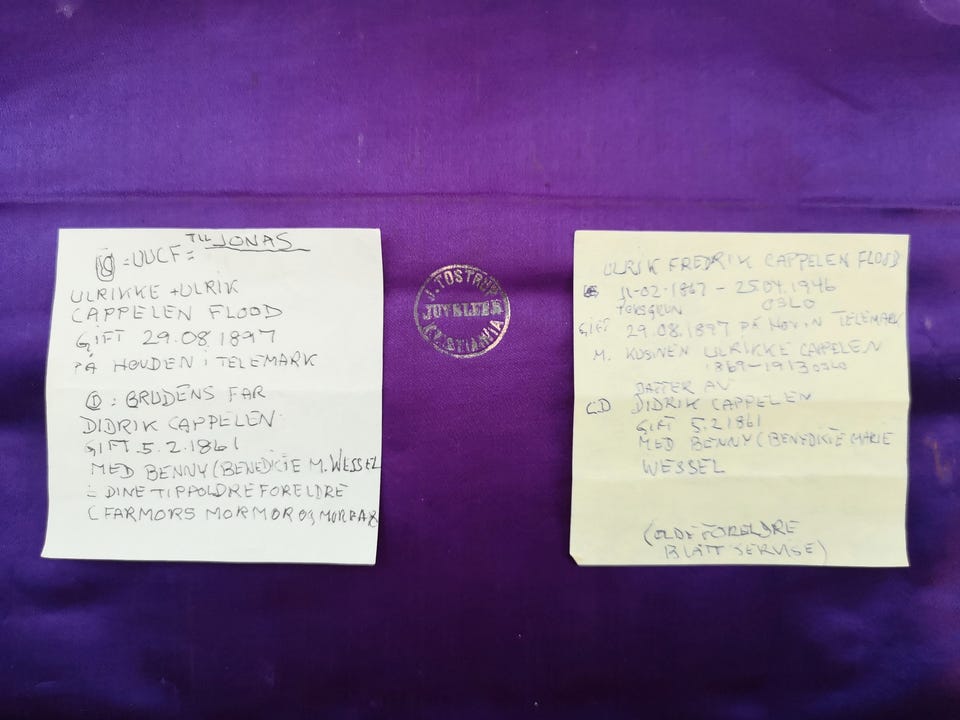 TILL JONAS
= UUCF =
ULRIKKE + ULRIK
CAPPELEN FLOOD
GIFT 29.08 1897
PÅ HOLDEN i TELEMARK
: BRUDENS FAR
DIDRIK CAPPELEN
GIFT 5.2.1861
MED BENNY (BENEDICTE M. WESSEL
= DINE TIPPOLDREFORELDRE
(FARMORS MORMOR og MORFAR
J. TOSTRUP
JUVELEER
KRISTIANIA
ULRIK FREDRIK CAPPELEN FLOOD
11-02-1867 - 25 04.1946
OSLO
GIFT 29.08.1897 PÅ TELEMARK
M. KUSINEN ULRIKKE CAPPELEN
1869-1913 OSLO
DATTER AV
CD DIDRIK CAPPELEN
GIFT 5.2 1861
MED BENNY (BENEDICTE MARIE
WESSEL
(OLDEFORELDRE
BLÅTT SERVISE)